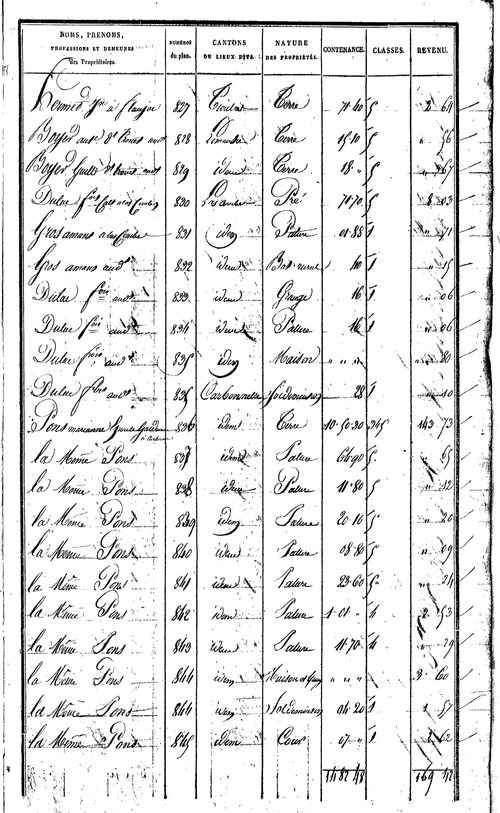 NOMS, PRENOMS, PROFESSIONS ET DEMEURES des Propriétaires. | NUMÉROS du plan. | CANTONS OU LIEUX DITS. | NATURE DES PROPRIÉTÉS. | CONTENANCE. | CLASSES. | REVENU.
827 Terre 71 40 5 2 64
Boyer 828 Terre 15 10 5 " 56
Boyer 829 idem Terre 18 " 5 " 67
Dulac fois 830 Pré 71 70 5 8 03
Gros amans 831 idem Pature 01 88 1 " 71
Gros amans aud. 832 idem 10 1 " 15
Dulac fois aud. 833 idem Grange 16 1 " 06
Dulac fois aud. 834 idem Pature 16 1 " 06
Dulac fois aud. 835 idem Maison " " "
Dulac fois aud. 835 Carbonnelle Sol de maison 28 1 " 10
Pons marianne 836 idem Terre 10 50 30 345 143 73
la Même Pons 837 idem Pature 64 90 5 " 65
la Même Pons 838 idem Pature 11 80 5 " 12
la Même Pons 839 idem Pature 20 10 5 " 20
la Même Pons 840 idem Pature 08 80 5 " 09
la Même Pons 841 idem Pature 23 60 5 " 24
la Même Pons 842 idem Pature 1 01 " 4 2 53
la Même Pons 843 idem Pature 11 70 4 " 29
la Même Pons 844 idem " " " 3 60
la Même Pons 844 idem Sol de maison 04 20 1 1 57
la Même Pons 845 idem Cour 07 " 1 2 62
14 82 48 169 42